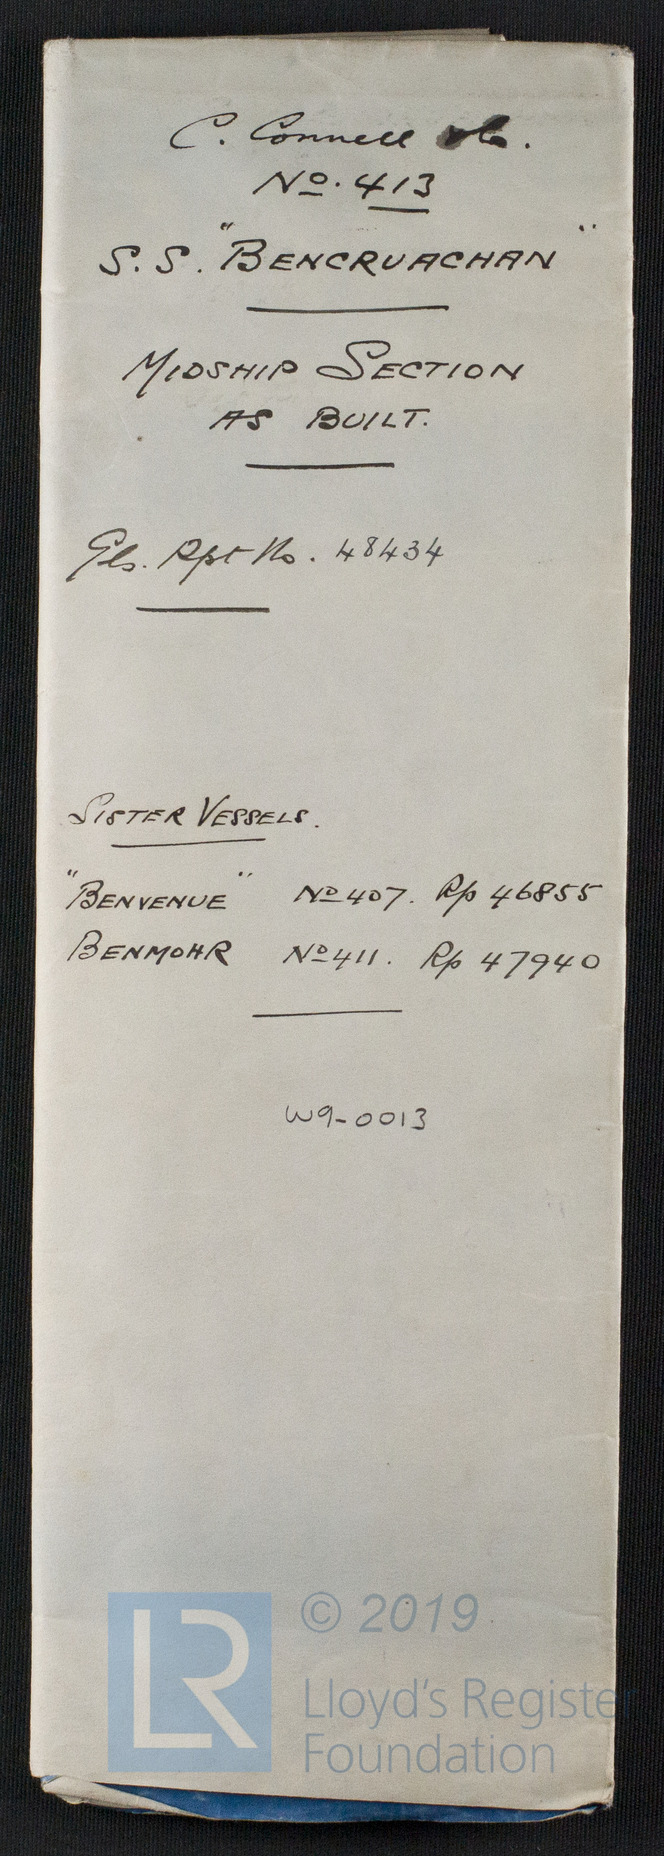 C. Connell & Co.
No. 413
S.S. "BENCRUACHAN"
MIDSHIP SECTION
AS BUILT.
Gls. Rpt No. 48434
SISTER VESSELS.
"BENVENUE" No 407. Rp 46855
BENMOHR No 411. Rp 47940
W9-0013
LR
© 2019
Lloyd's Register
Foundation